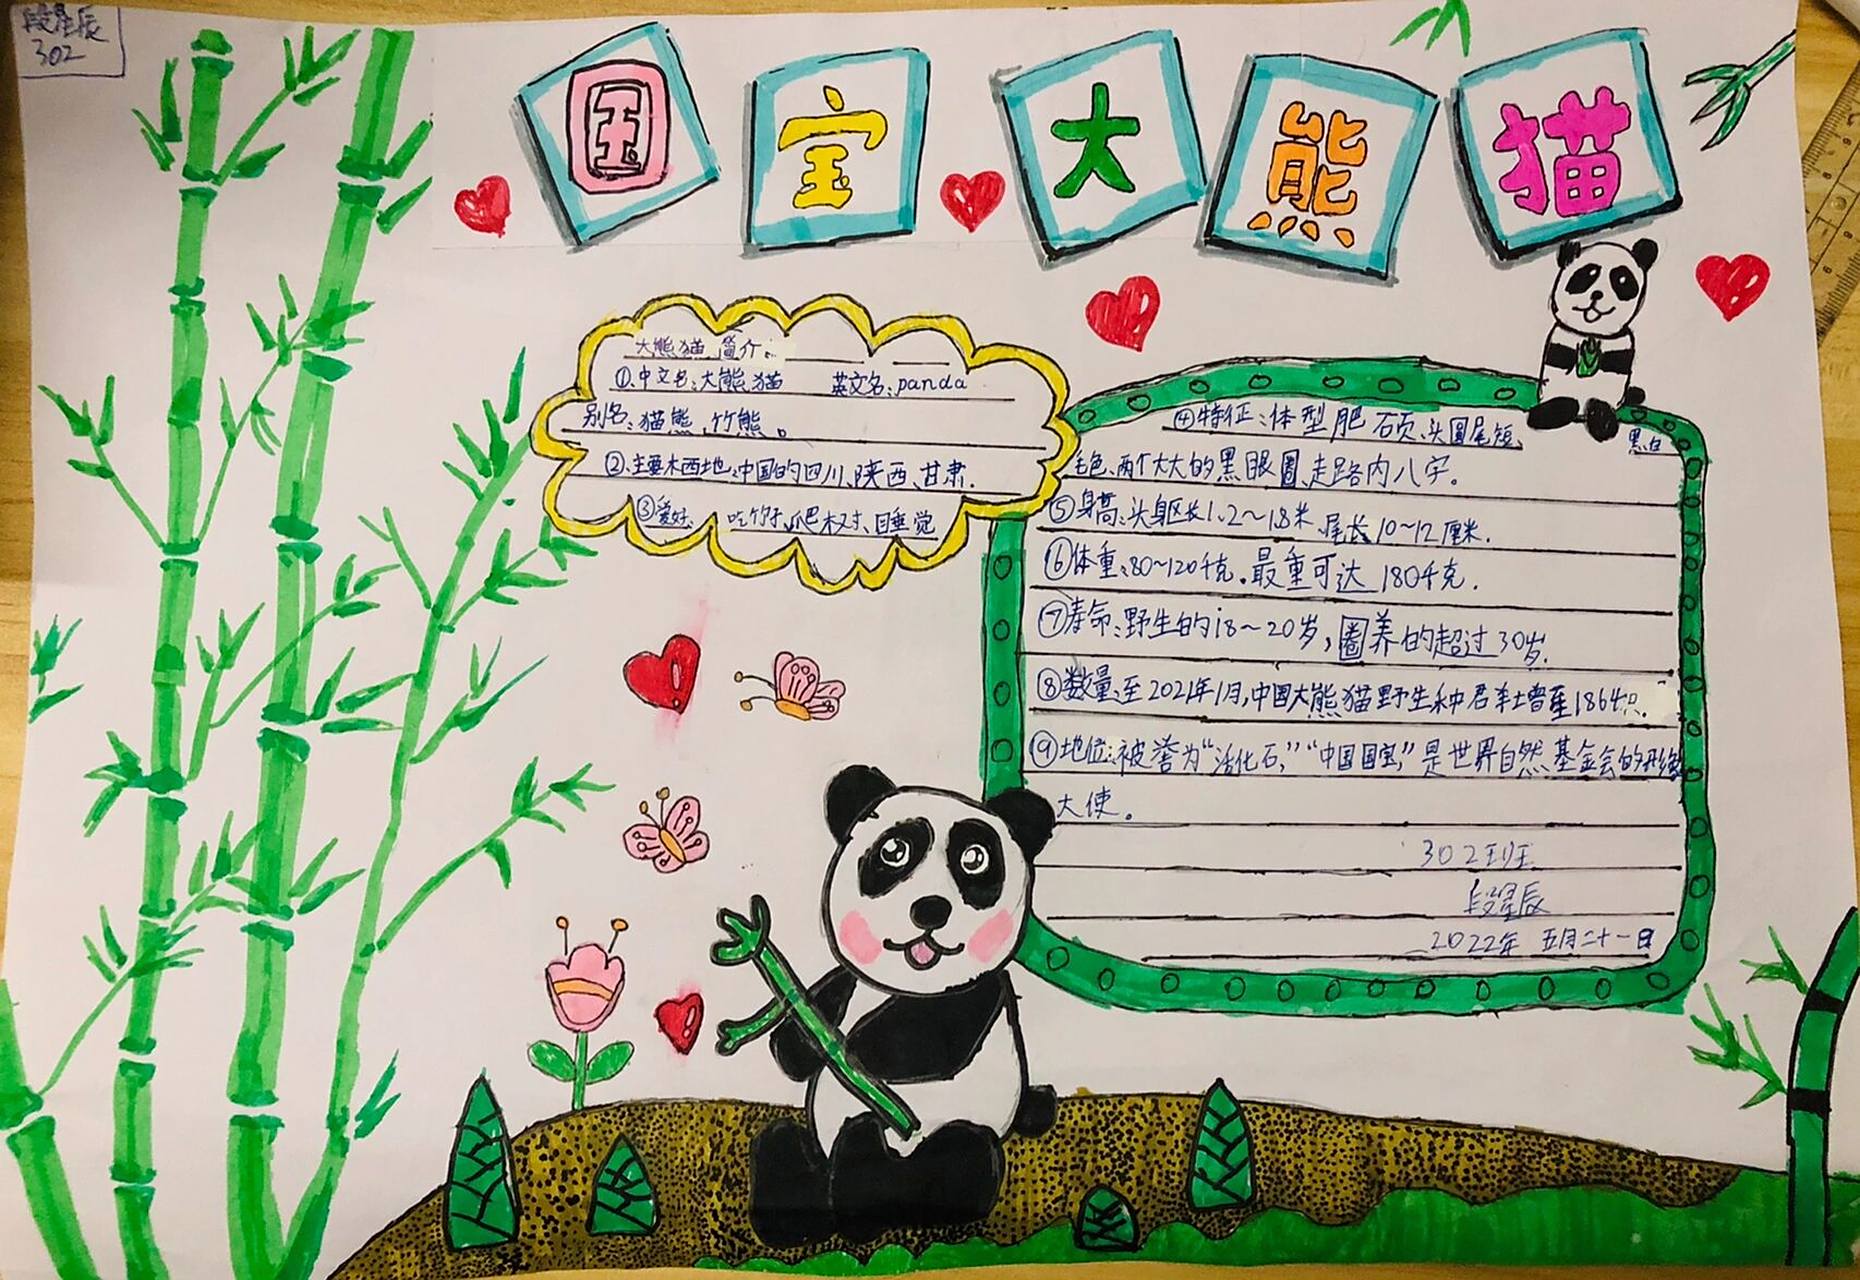 段星辰
302
国宝大熊猫
大熊猫简介:
①、中文名:大熊猫 英文名:panda
别名:猫熊、竹熊。
②、主要木西地:中国的四川、陕西、甘肃.
③爱好: 吃竹子、爬树、睡觉
④特征:体型肥硕、头圆尾短、黑白
毛色、两个大大的黑眼圈、走路内八字。
⑤身高:头身区长1.2～1.8米、尾长10～12厘米.
⑥体重:80～120千克.最重可达180千克.
⑦寿命:野生的18～20岁,圈养的超过30岁.
⑧数量:至2021年1月,中国大熊猫野生种君羊土曾至1864只.
⑨地位:被誉为“活化石,”“中国国宝,”是世界自然基金会的形缘
大使。
302班
段星辰
2022年 五月二十一日